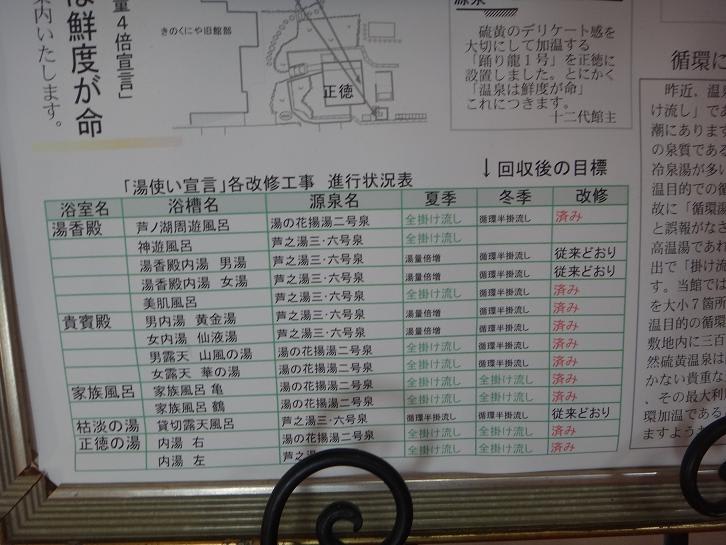 量4倍宣言」
は鮮度が命
案内いたします。
きのくにや旧館部
正徳
硫黄のデリケート感を
大切にして加温する
「踊り龍1号」を正徳に
設置しました。とにかく
「温泉は鮮度が命」
これにつきます。
十二代館主
循環に
昨近、温泉
け流し」であ
潮にあります
の泉質である
冷泉湯が多い
温目的での循
故に「循環湯
と誤報がなさ
高温湯であれ
出で「掛け流
す。当館では
を大小7箇所
温目的の循環
敷地内に三百
然硫黄温泉は
かない貴重な
、その最大利
環加温である
ますよう
「湯使い宣言」各改修工事 進行状況表
↓回収後の目標
浴室名 浴槽名 源泉名 夏季 冬季 改修
湯香殿 芦ノ湖周遊風呂 湯の花揚湯二号泉 全掛け流し 循環半掛流し 済み
神遊風呂 芦之湯三・六号泉 全掛け流し
湯香殿内湯 男湯 芦之湯三・六号泉 湯量倍増 循環半掛流し 従来どおり
湯香殿内湯 女湯 芦之湯三・六号泉 湯量倍増 循環半掛流し 従来どおり
美肌風呂 芦之湯三・六号泉 全掛け流し 循環半掛流し 済み
貴賓殿 男内湯 黄金湯 芦之湯三・六号泉 湯量倍増 循環半掛流し 済み
女内湯 仙液湯 芦之湯三・六号泉 湯量倍増 循環半掛流し 済み
男露天 山風の湯 湯の花揚湯二号泉 全掛け流し 循環半掛流し 済み
女露天 華の湯 湯の花揚湯二号泉 全掛け流し 循環半掛流し 済み
家族風呂 家族風呂 亀 湯の花揚湯二号泉 全掛け流し 全掛け流し 済み
家族風呂 鶴 湯の花揚湯二号泉 全掛け流し 全掛け流し 済み
枯淡の湯 貸切露天風呂 芦之湯三・六号泉 循環半掛流し 循環半掛流し 従来どおり
正徳の湯 内湯 右 湯の花揚湯二号泉 全掛け流し 全掛け流し 済み
内湯 左 芦之 全掛け流し 全掛け流し 済み